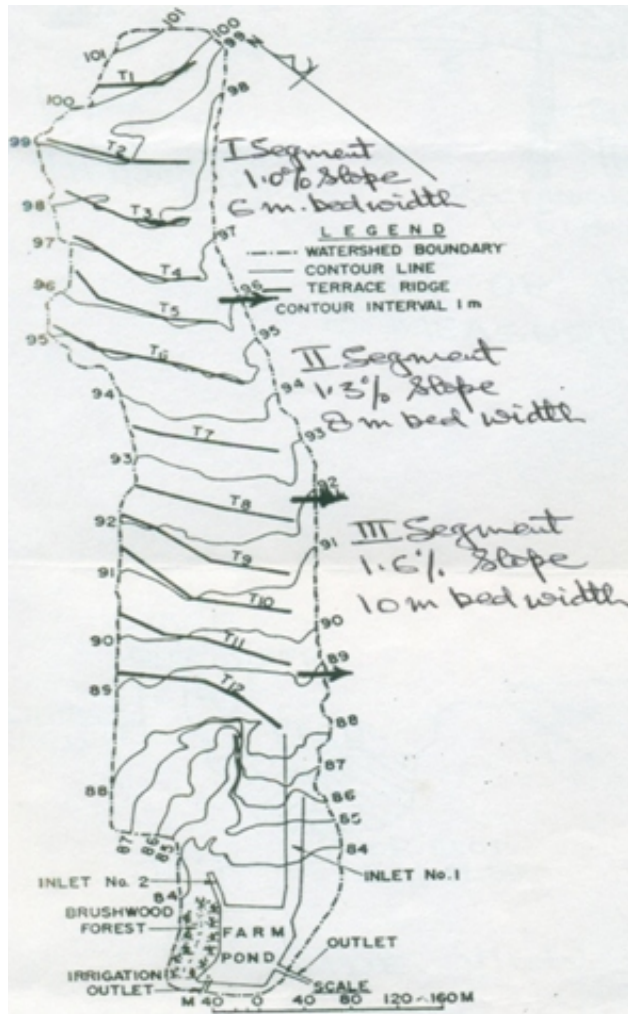 101
100
101
99
N
T1
98
100
99
T2
I Segment
1.0% Slope
6 m. bed width
98
T3
LEGEND
97
97
WATERSHED BOUNDARY
T4
CONTOUR LINE
96
96
TERRACE RIDGE
T5
CONTOUR INTERVAL 1 m
95
95
T6
II Segment
1.3% Slope
8 m bed width
94
94
T7
93
93
92
T8
92
III Segment
1.6% Slope
10 m bed width
91
T9
91
T10
90
90
T11
89
89
T12
88
87
88
86
85
87
86
85
84
INLET No. 2
INLET No. 1
84
BRUSHWOOD
FOREST
FARM
POND
OUTLET
IRRIGATION
OUTLET
SCALE
M 40 0 40 80 120 160 M